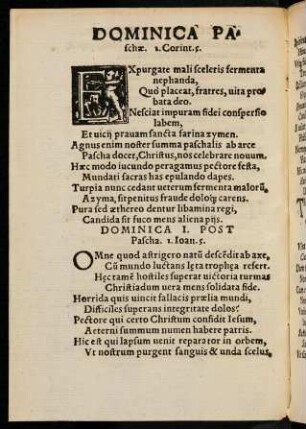 DOMINICA PA-
schæ. 1. Corint. 5.
EXpurgate mali sceleris fermenta
nephanda,
Quo placeat, fratres, uita pro-
bata deo.
Nesciat impuram fidei conspersio
labem,
Et uicij prauam sancta farina zymen.
Agnus enim noster summa paschalis ab arce
Pascha docet, Christus, nos celebrare nouum.
Hæc modo iucundo peragamus pectore festa,
Mundati sacras has epulando dapes.
Turpia nunc cedant ueterum fermenta malorũ,
Azyma, sit penitus fraude doloq; carens.
Pura sed æthereo dentur libamina regi,
Candida sit fuco mens aliena pijs.
DOMINICA I. POST
Pascha. 1. Ioan. 5.
OMne quod astrigero natũ descẽdit ab axe,
Cũ mundo luctans læta trophęa refert.
Hęc tamẽ hostiles superat uictoria turmas
Christiadum uera mens solidata fide.
Horrida quis uincit fallacis prælia mundi,
Difficiles superans integritate dolos?
Pectore qui certo Christum confidit Iesum,
Aeterni summum numen habere patris.
Hic est qui lapsum uenit reparator in orbem,
Vt nostrum purgent sanguis & unda scelus.